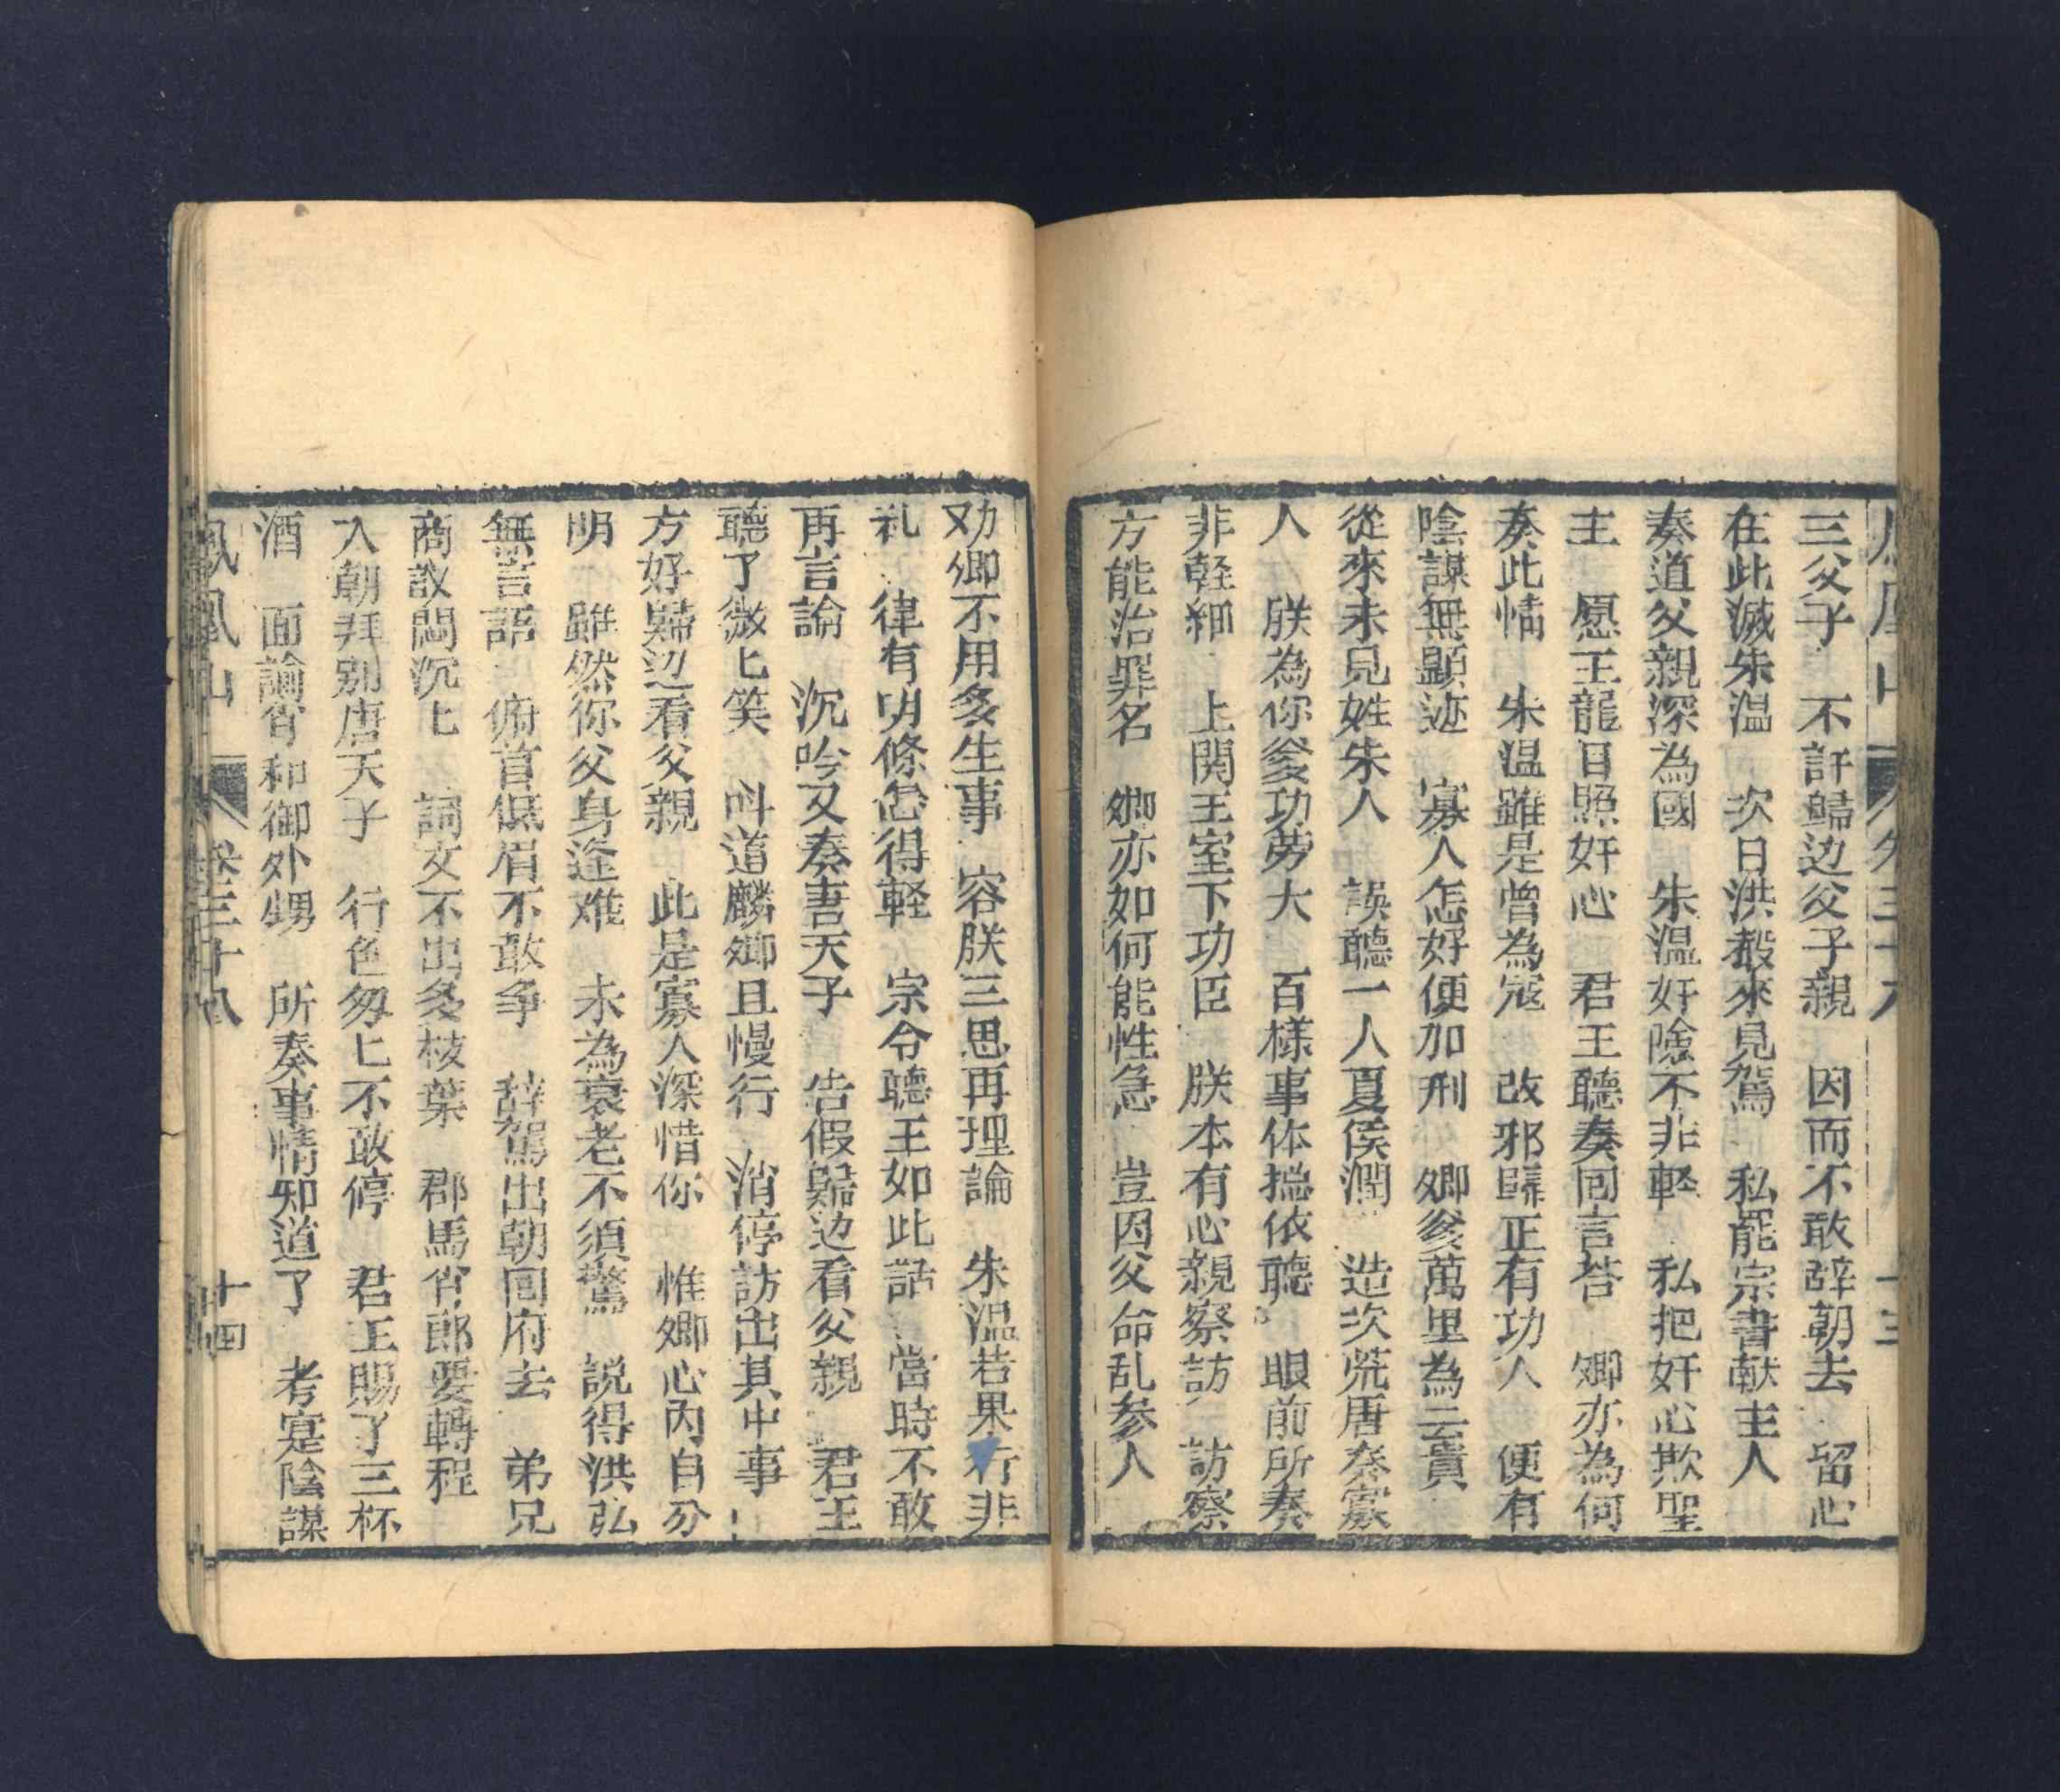 三父子　不許歸边父子親　因而不敢辞朝去　留心
在此滅朱温　次日洪㲄來見駕　私罷宗書献主人
奏道父親深為國　朱温奸險不非軽　私把奸心欺聖
主　愿王龍目照奸心　君王聽奏囘言荅　卿亦為何
奏此情　朱温雖是曾為冦　改邪歸正有功人　便有
陰謀無顯迹　寡人怎好便加刑　卿爹萬里為云貴
從來未見姓朱人　誤聽一人夏侯潤　造次荒唐奏寡
人　朕為你爹功劳大　百様事体揔依聽　眼前所奏
非軽細　上関王室下功臣　朕本有心親察訪　訪察
方能治罪名　卿亦如何能性急　豈因父命乱参人
劝卿不用多生事　容朕三思再理論　朱温若果行非
礼　律有明條怎得軽　宗令聽王如此話　當時不敢
再言論　沉吟又奏唐天子　告假歸边看父親　君王
聽了微匕笑　呌道麟卿且慢行　消停訪出其中事
方好歸边看父親　此是寡人深惜你　惟卿心内自分
明　雖然你父身逢难　未為衰老不須驚　説得洪弘
無言語　俯首低眉不敢争　辞駕出朝囘府去　弟兄
商議悶沉匕　詞文不出多枝葉　郡馬宵郎要轉程
入朝拜别唐天子　行色匆匕不敢停　君王賜了三杯
酒　面諭宵和御外甥　所奏事情知道了　考寔陰謀
鳳凰山　卷三十八　十四